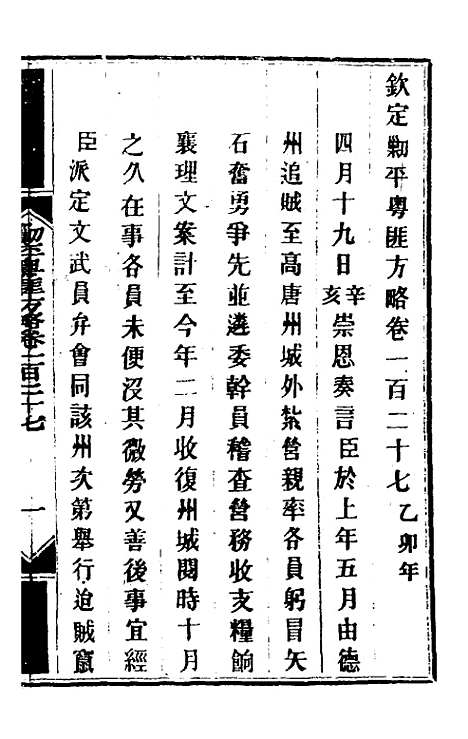 欽定剿平粵匪方略卷一百二十七乙卯年
四月十九日辛亥崇恩奏言臣於上年五月由德
州追賊至高唐州城外紮營親率各員躬冒矢
石奮勇爭先並遴委幹員稽查營務收支糧餉
襄理文案計至今年二月收復州城閱時十月
之久在事各員未便沒其微勞又善後事宜經
臣派定文武員弁會同該州次第舉行迨賊竄
剿平粵匪方略卷一百二十七 一